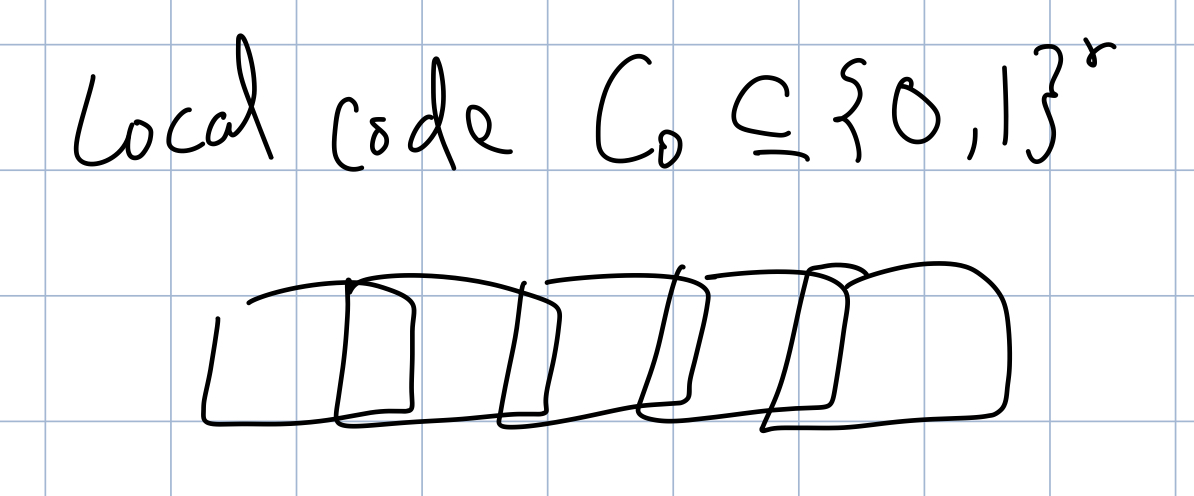 Local code C₀ ⊆ {0,1}ʳ